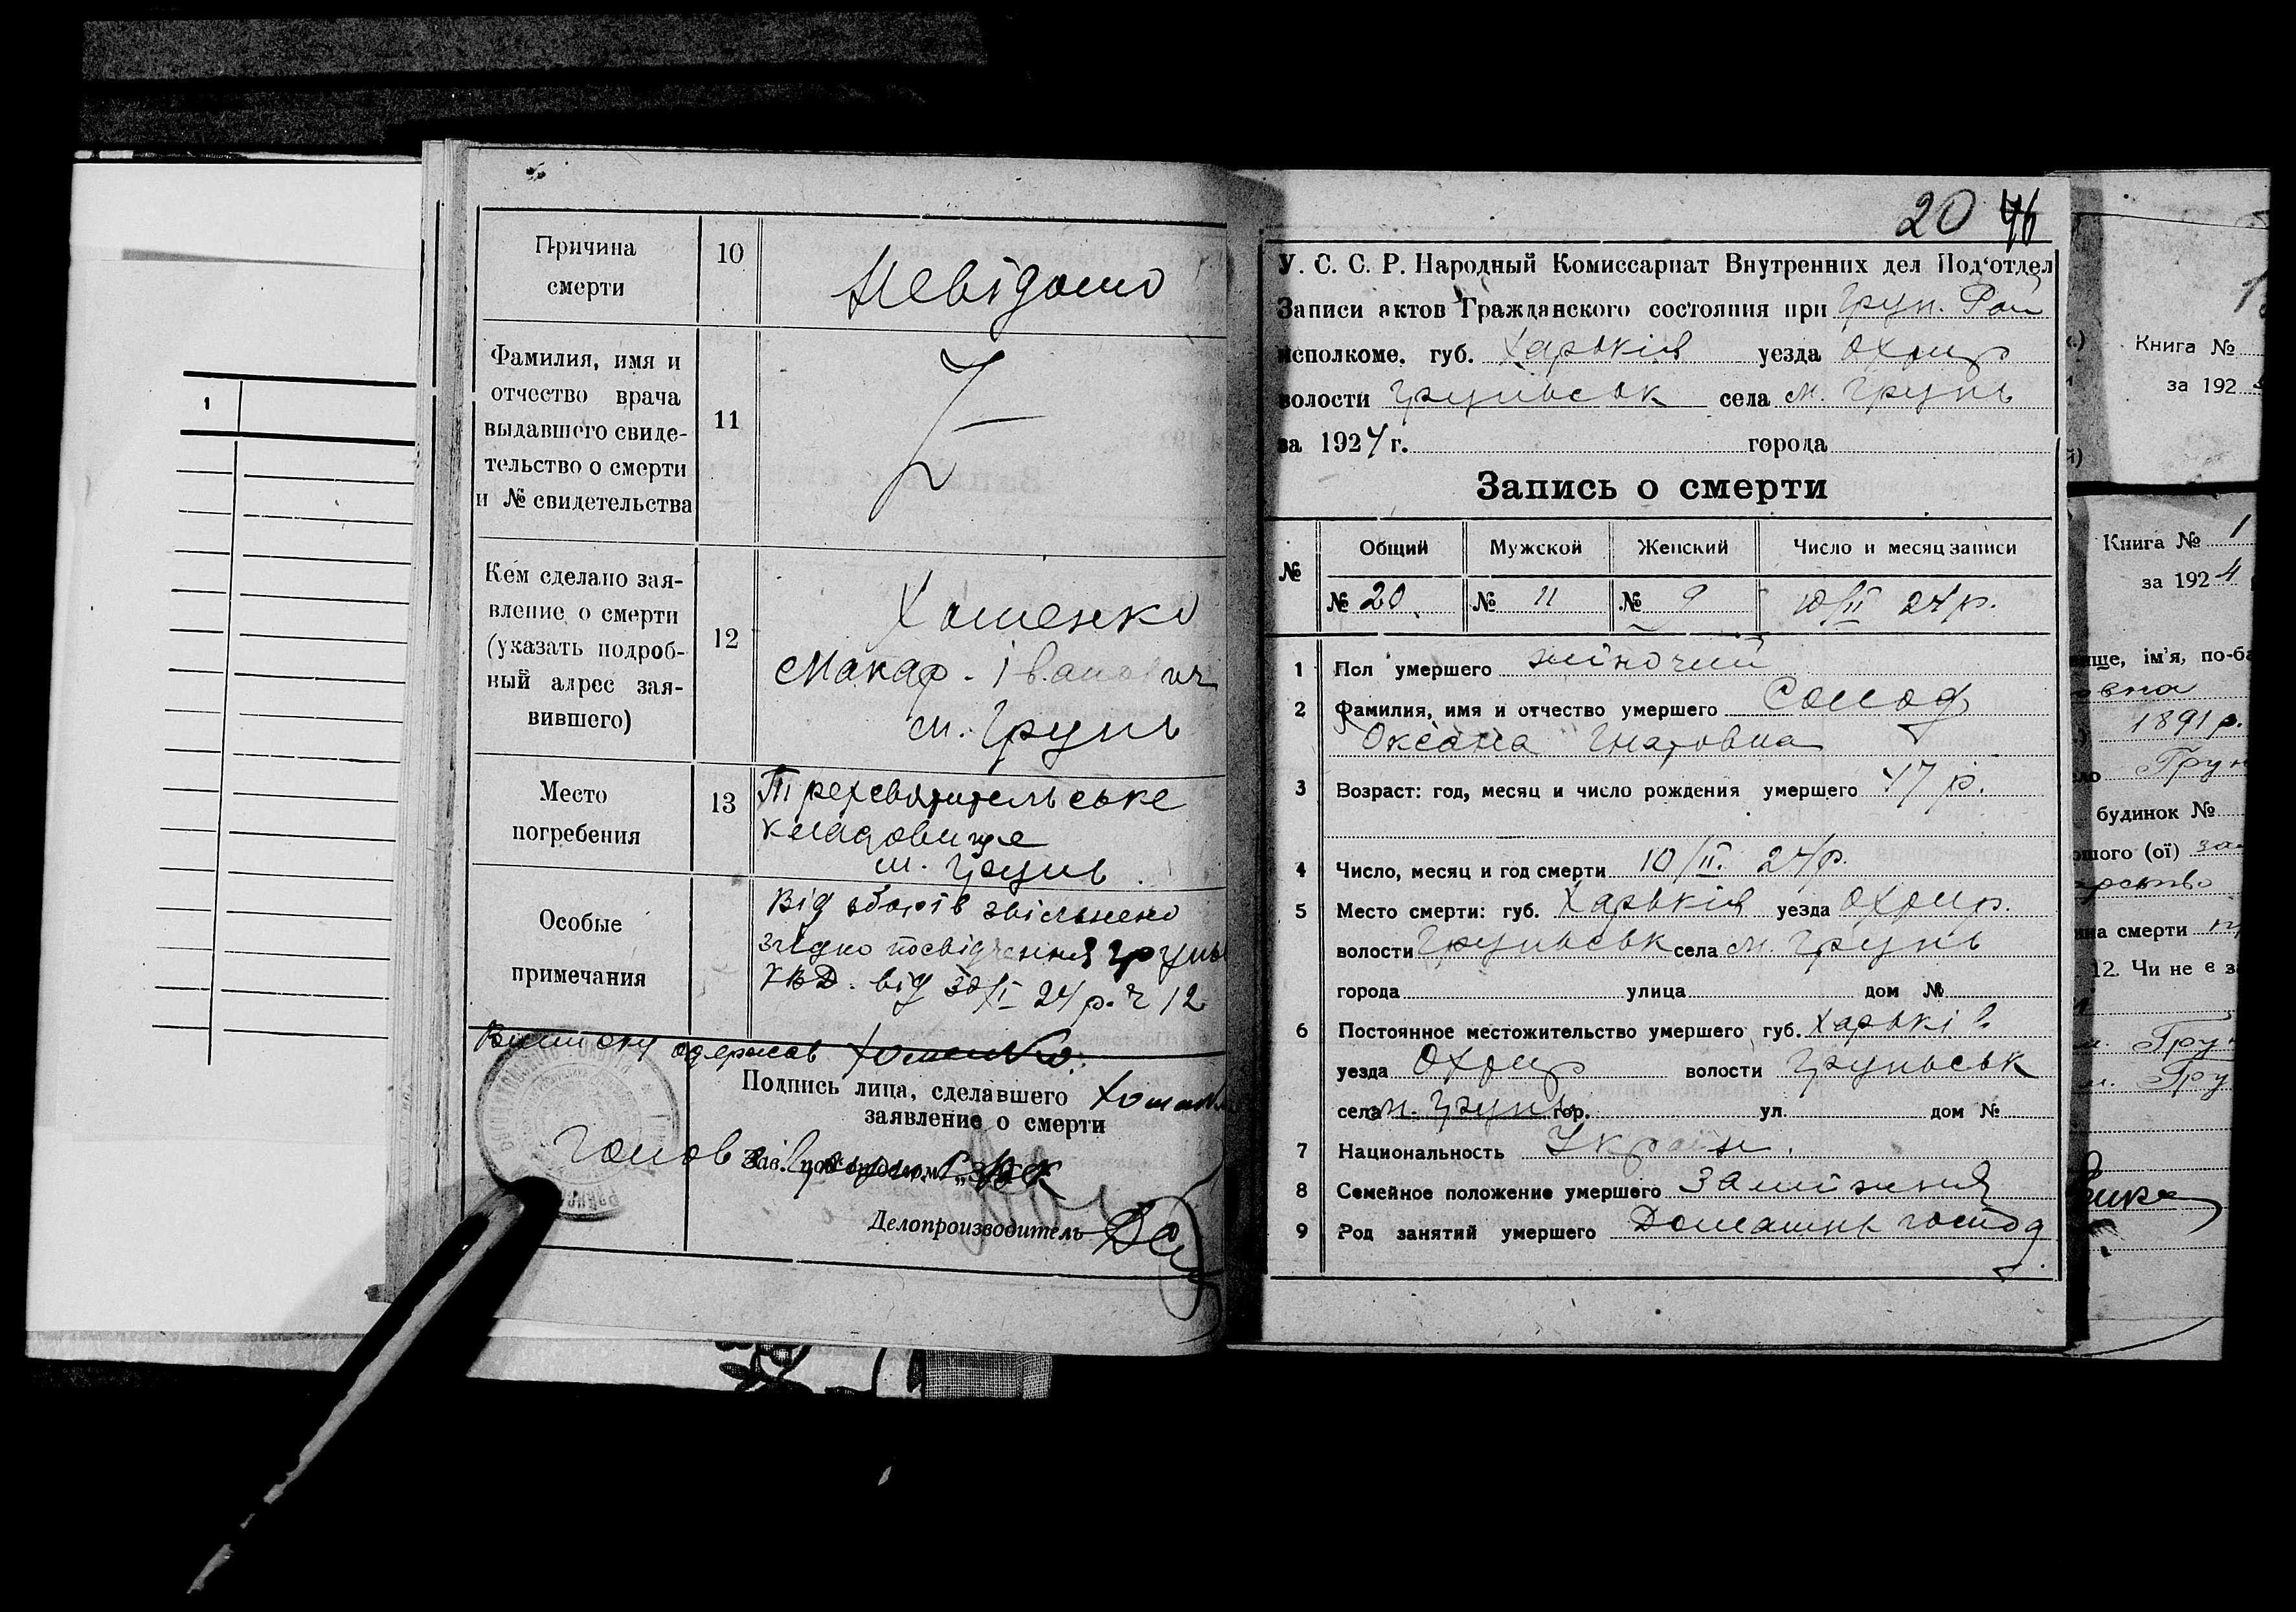 1
Причина
смерти
10
Невідомо
Фамилия, имя и
отчество врача
выдавшего свиде-
тельство о смерти
и № свидетельства
11
Кем сделано зая-
вление о смерти
(указать подроб-
ный адрес зая-
вившего)
12
Хоменко
Макар Іванович
м. Грунь
Место
погребения
13
кладовище
м. Грунь
Особые
примечания
Від зборів звільнено
згідно посвідчення Грунь
від 30/I 24 р. ч 12
Виписку одержав Хоменко
Подпись лица, сделавшего
заявление о смерти
Хоменко
Голов
Зав. подотделом
Делопроизводитель
20 46
У. С. С. Р. Народный Комиссариат Внутренних дел Под'отдел
Записи актов Гражданского состояния при Грун. Рай
исполкоме. губ. Харьків уезда Охтир
волости Груньськ села м. Грунь
за 1924 г. города
Запись о смерти
№ Общий Мужской Женский Число и месяц записи
№ 20 № 11 № 9 10/II 24 р.
1 Пол умершего жіночий
2 Фамилия, имя и отчество умершего Солод
Оксана Гнатовна
3 Возраст: год, месяц и число рождения умершего 47 р.
4 Число, месяц и год смерти 10/II. 24 р.
5 Место смерти: губ. Харьків уезда Охтир.
волости Груньськ села м. Грунь
города улица дом №
6 Постоянное местожительство умершего губ. Харьків
уезда Охтир волости Груньськ
села м. Грунь гор. ул. дом №
7 Национальность Україн.
8 Семейное положение умершего Заміжня
9 Род занятий умершего Домашнє господ.
Книга №
за 192
Книга № 1
за 1924
ім'я, по-ба
1891 р.
Грун
будинок №
шого (ої)
смерти
12. Чи не є з
м. Грун
м. Гру